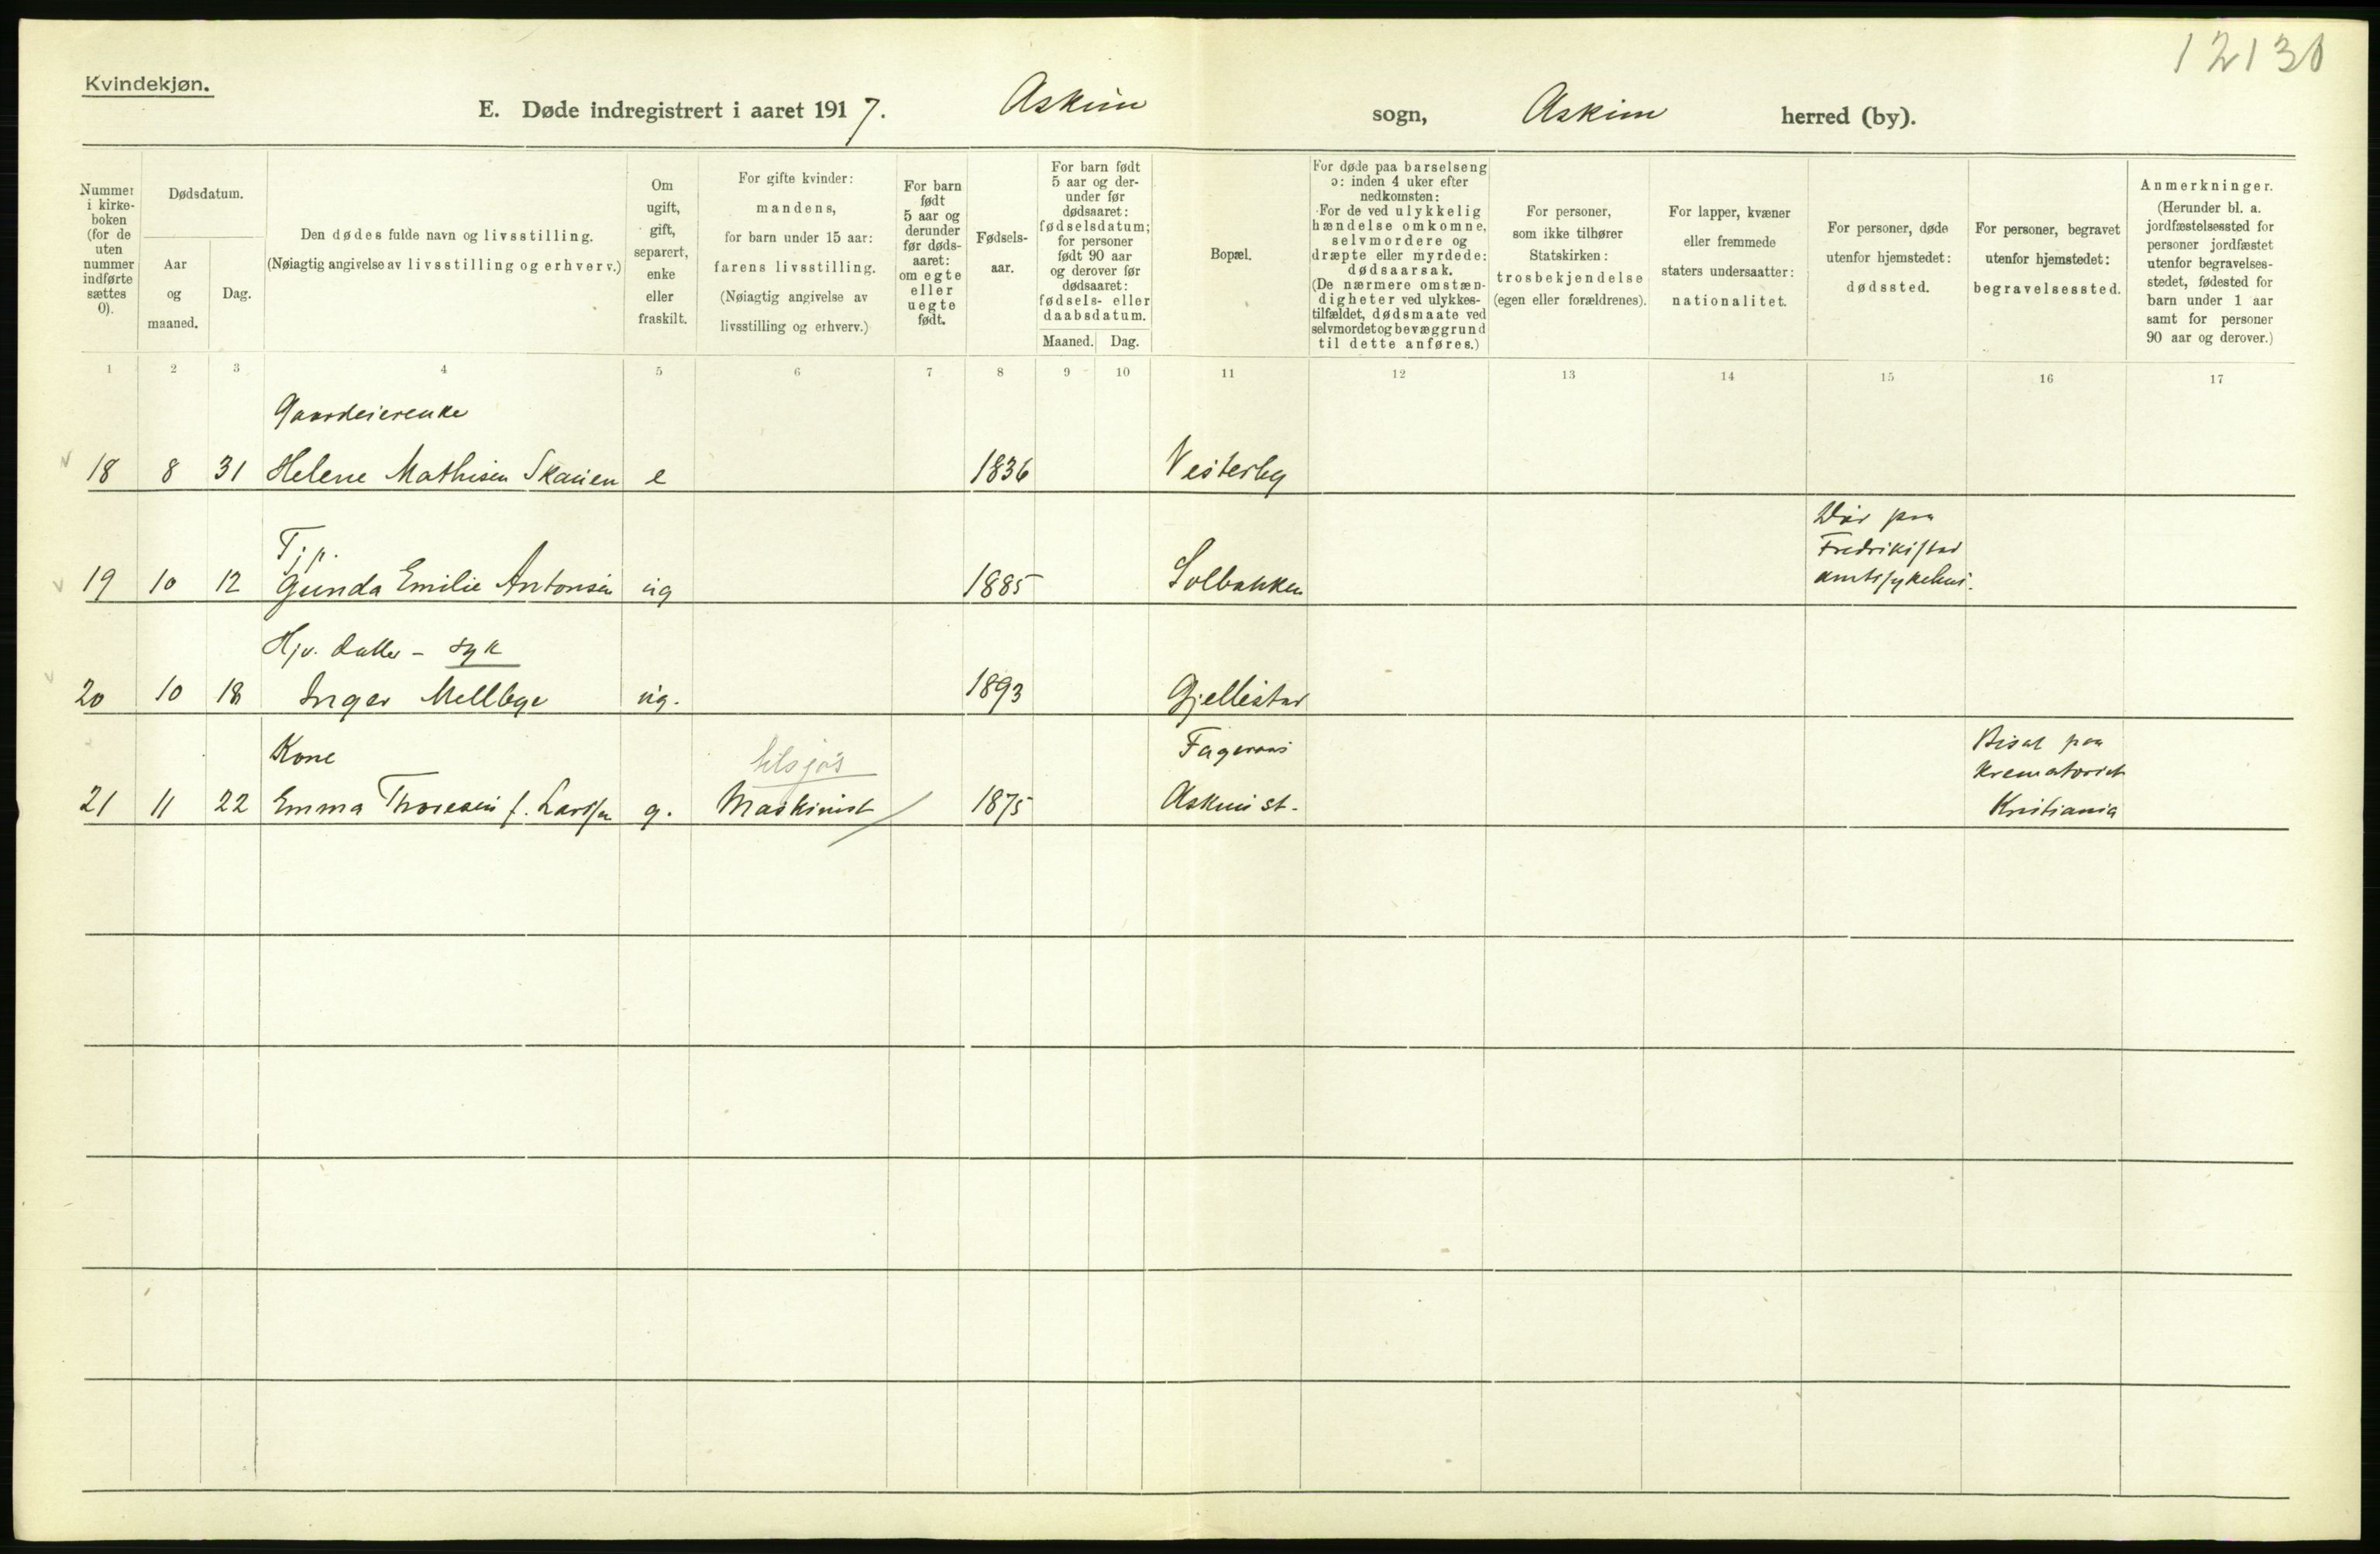 12130
Kvindekjøn.
E. Døde indregistrert i aaret 1917. Askim sogn, Askim herred (by).
Nummer
i kirke-
boken
(for de
uten
nummer
indførte
sættes
0).
Dødsdatum.
Aar
og
maaned.
Dag.
Den dødes fulde navn og livsstilling.
(Nøiagtig angivelse av livsstilling og erhverv.)
Om
ugift,
gift,
separert,
enke
eller
fraskilt.
For gifte kvinder:
mandens,
for barn under 15 aar:
farens livsstilling.
(Nøiagtig angivelse av
livsstilling og erhverv.)
For barn
født
5 aar og
derunder
før døds-
aaret:
om egte
eller
uegte
født.
Fødsels-
aar.
For barn født
5 aar og der-
under før
dødsaaret:
fødselsdatum;
for personer
født 90 aar
og derover før
dødsaaret:
fødsels- eller
daabsdatum.
Maaned. Dag.
Bopæl.
For døde paa barselseng
ɔ: inden 4 uker efter
nedkomsten:
For de ved ulykkelig
hændelse omkomne,
selvmordere og
dræpte eller myrdede:
dødsaarsak.
(De nærmere omstæn-
digheter ved ulykkes-
tilfældet, dødsmaate ved
selvmordet og bevæggrund
til dette anføres.)
For personer,
som ikke tilhører
Statskirken:
trosbekjendelse
(egen eller forældrenes).
For lapper, kvæner
eller fremmede
staters undersaatter:
nationalitet.
For personer, døde
utenfor hjemstedet:
dødssted.
For personer, begravet
utenfor hjemstedet:
begravelsessted.
Anmerkninger.
(Herunder bl. a.
jordfæstelsessted for
personer jordfæstet
utenfor begravelses-
stedet, fødested for
barn under 1 aar
samt for personer
90 aar og derover.)
1 2 3 4 5 6 7 8 9 10 11 12 13 14 15 16 17
Gaardeierenke
18 8 31 Helene Mathisen Skauen e 1836 Vesterby
Tjp.
19 10 12 Gunda Emilie Antonsen ug 1885 Solbakken
Død paa
Fredrikstad
amtssykehus.
Hjv. datter - syk
20 10 18 Inger Mellbye ug. 1893 Gjellestad
Kone
tilsjøs
Fageraas
21 11 22 Emma Thoresen f. Larsen g. Maskinist 1875 Askim st.
Bisat paa
krematoriet
Kristiania